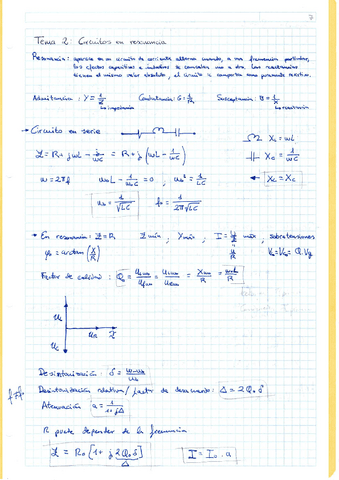 7
Tema 2: Circuitos en resonancia
Resonancia: aparece en un circuito de corriente alterna cuando, a una frecuencia particular,
los efectos capacitivos e inductivos se cancelan uno a otro. Las reactancias
tienen el mismo valor absoluto, el circuito se comporta como puramente resistivo.
Admitancia: Y = 1/Z Conductancia: G = 1/R Susceptancia: B = 1/X
↳ impedancia ↳ reactancia
→ Circuito en serie
X_L = ωL
Z = R + jωL - j/ωC = R + j(ωL - 1/ωC) X_C = 1/ωC
ω = 2πf ω₀L - 1/ω₀C = 0, ω₀² = 1/LC ← X_L = X_C
ω₀ = 1/√LC f₀ = 1/2π√LC
→ En resonancia: Z = R Z mín, Y máx, I = U/Z máx, sobretensiones
φ₀ = arctan(X/R) U/R
Factor de calidad: Q₀
U_L
U_R I
U_C
Desintonización: δ = ω-ω₀/ω₀
Desintonización relativa / factor de desacuerdo: Δ = 2Q₀δ
Atenuación a = 1/1+jΔ
R puede depender de la frecuencia
Z = R₀[1 + j 2Q₀δ] I = I₀ · a
Δ